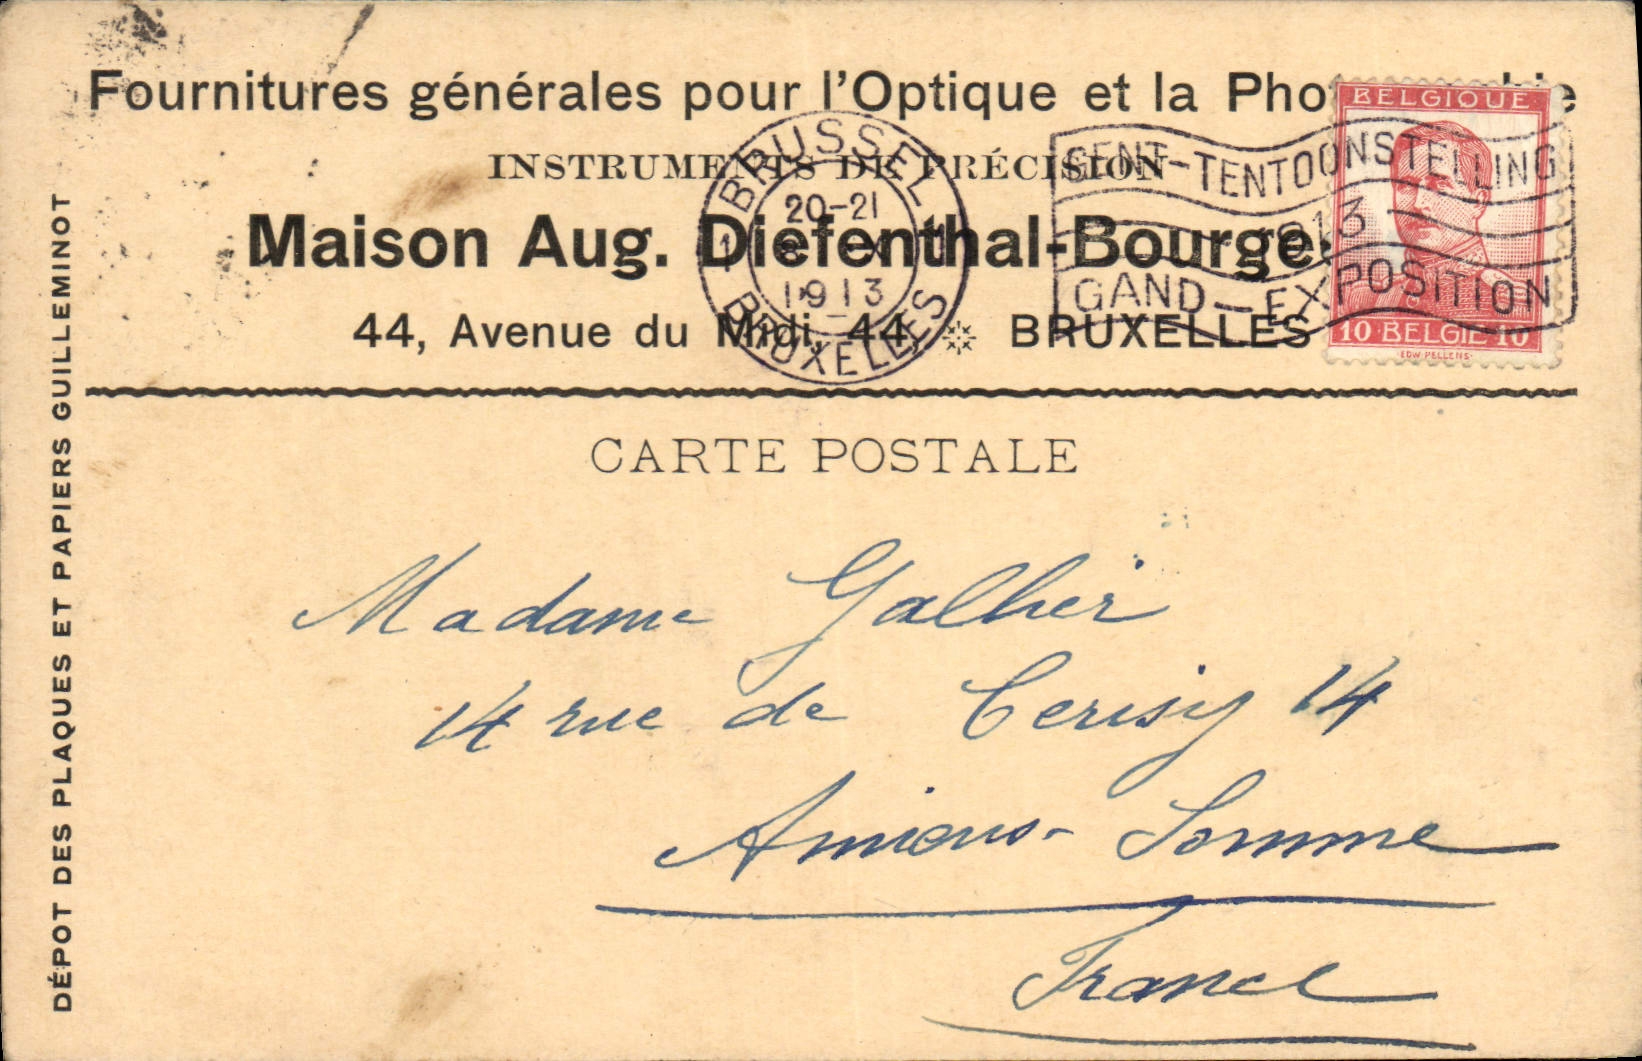 Fournitures générales pour l'Optique et la
INSTRUMENTS DE PRÉCISION
Maison Aug. Diefenthal-Bourge
44, Avenue du Midi, 44, BRUXELLES
BRUSSEL
20-21
1913
BRUXELLES
GENT-TENTOONSTELLING
1913
GAND-EXPOSITION
BELGIQUE
10 BELGIE 10
EDW PELLENS
CARTE POSTALE
Madame
14 rue de Cerisy 14
Amiens - Somme
France
DÉPOT DES PLAQUES ET PAPIERS GUILLEMINOT